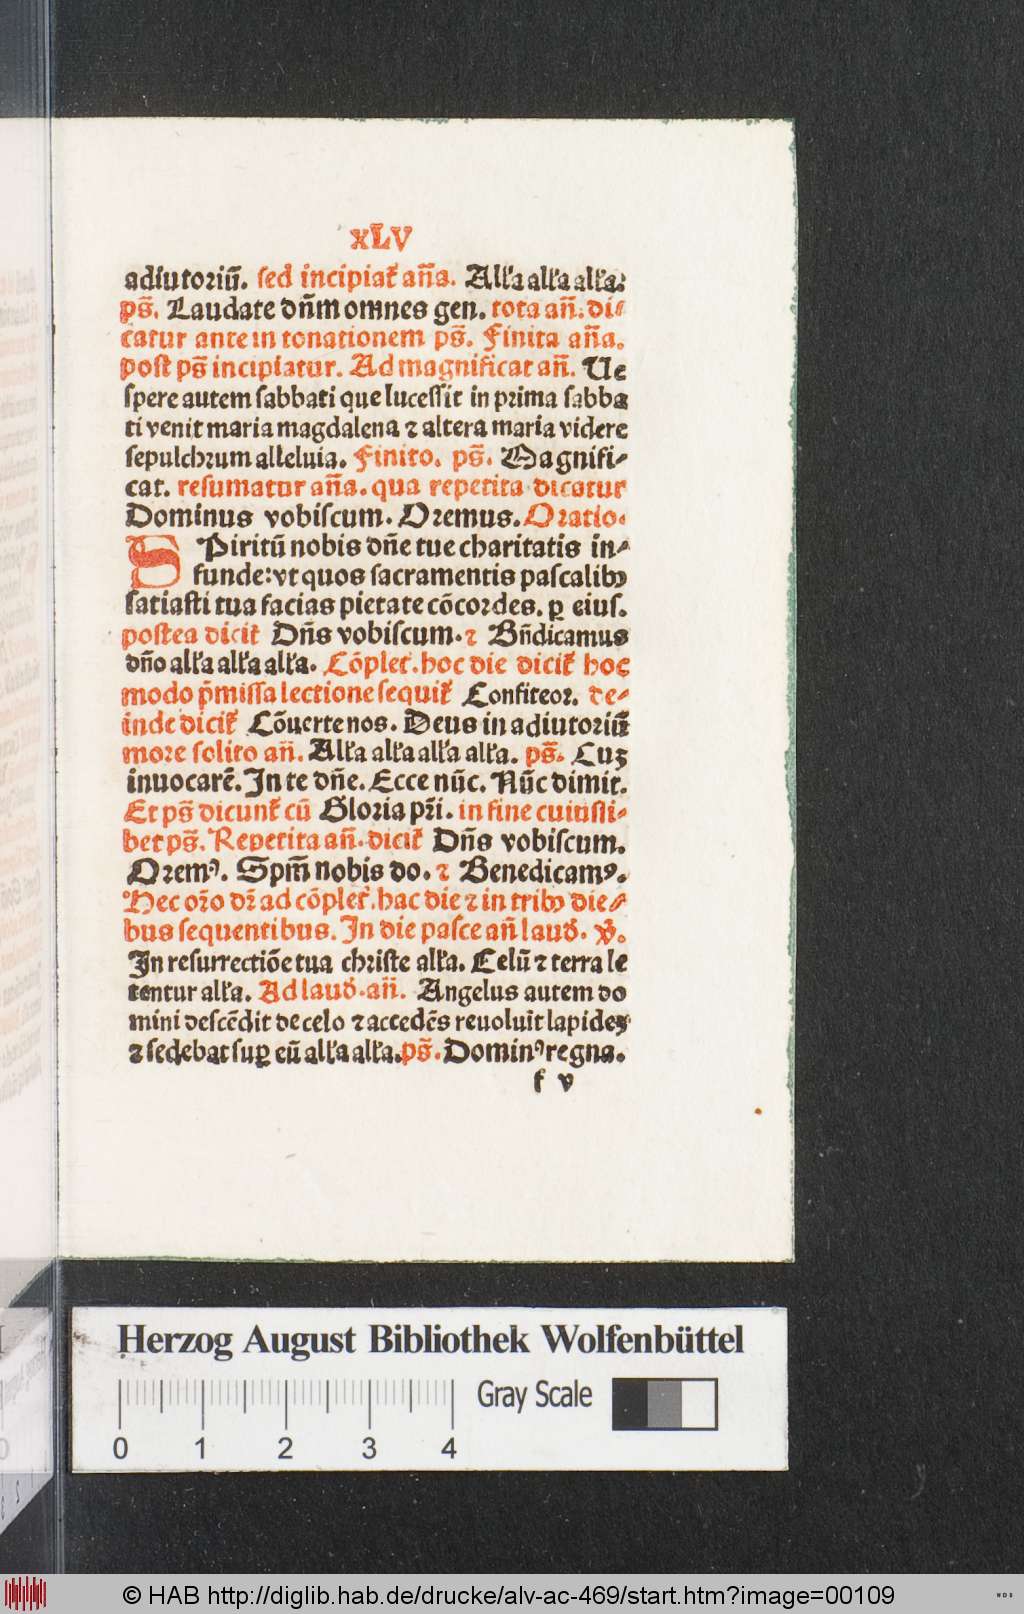 xLV
adiutoriū. sed incipiat᷑ an̄a. All'a all'a all'a.
ps̄. Laudate dn̄m omnes gen. tota an̄. di⸗
catur ante in tonationem ps̄. Finita an̄a.
post ps̄ incipiatur. Ad magnificat an̄. Ue
spere autem sabbati que lucessit in prima sabba
ti venit maria magdalena ⁊ altera maria videre
sepulchrum alleluia. Finito. ps̄. Magnifi⸗
cat. resumatur an̄a. qua repetita dicatur
Dominus vobiscum. Oremus. Oratio.
SPiritū nobis dn̄e tue charitatis in⸗
funde: vt quos sacramentis pascalibꝰ
satiasti tua facias pietate cōcordes. ꝑ eius.
postea dicit᷑ Dn̄s vobiscum. ⁊ Bn̄dicamus
dn̄o all'a all'a all'a. Cōplet᷑. hoc die dicit᷑ hoc
modo p̄missa lectione sequit᷑ Confiteor. de⸗
inde dicit᷑ Cōuerte nos. Deus in adiutoriū
more solito an̄. All'a all'a all'a all'a. ps̄. Cuꝫ
inuocarē. In te dn̄e. Ecce nūc. Nūc dimit.
Et ps̄ dicunt᷑ cū Gloria pr̄i. in fine cuiusli⸗
bet ps̄. Repetita an̄. dicit᷑ Dn̄s vobiscum.
Oremꝰ. Spm̄ nobis do. ⁊ Benedicamꝰ.
Hec or̄o dr̄ ad cōplet᷑. hac die ⁊ in tribꝰ die⸗
bus sequentibus. In die pasce an̄ laud̄. v̄.
In resurrectiōe tua christe all'a. Celū ⁊ terra le
tentur all'a. Ad laud̄. an̄. Angelus autem do
mini descēdit de celo ⁊ accedēs reuoluit lapideꝫ
⁊ sedebat suꝑ eū all'a all'a. ps̄. Dominꝰ regna.
f v
Herzog August Bibliothek Wolfenbüttel
Gray Scale
0 1 2 3 4
© HAB http://diglib.hab.de/drucke/alv-ac-469/start.htm?image=00109